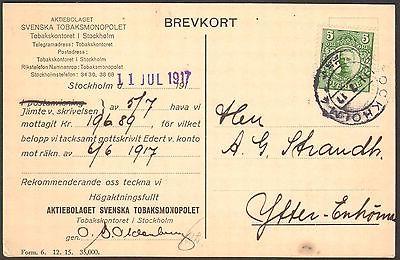 BREVKORT
AKTIEBOLAGET
SVENSKA TOBAKSMONOPOLET
Tobakskontoret i Stockholm
Telegramadress: Tobakskontoret
Postadress:
Tobakskontoret i Stockholm
Rikstelefon Namnanrop: Tobaksmonopolet
Stockholmstelefon: 34 30, 38 68
Stockholm d. 191
11 JUL 1917
I postanvisning
Jämte v. skrivelsen av 5/7 hava vi
mottagit Kr 196.89 för vilket
belopp vi tacksamt gottskrivit Edert v. konto
mot räkn. av 6/6 1917
Rekommenderande oss teckna vi
Högaktningsfullt
AKTIEBOLAGET SVENSKA TOBAKSMONOPOLET
Tobakskontoret i Stockholm
gen.
Form. 6. 12. 15. 35,000.
5 5
STOCKHOLM
Herr
A. G. Strandh
Ytter-Enhörna